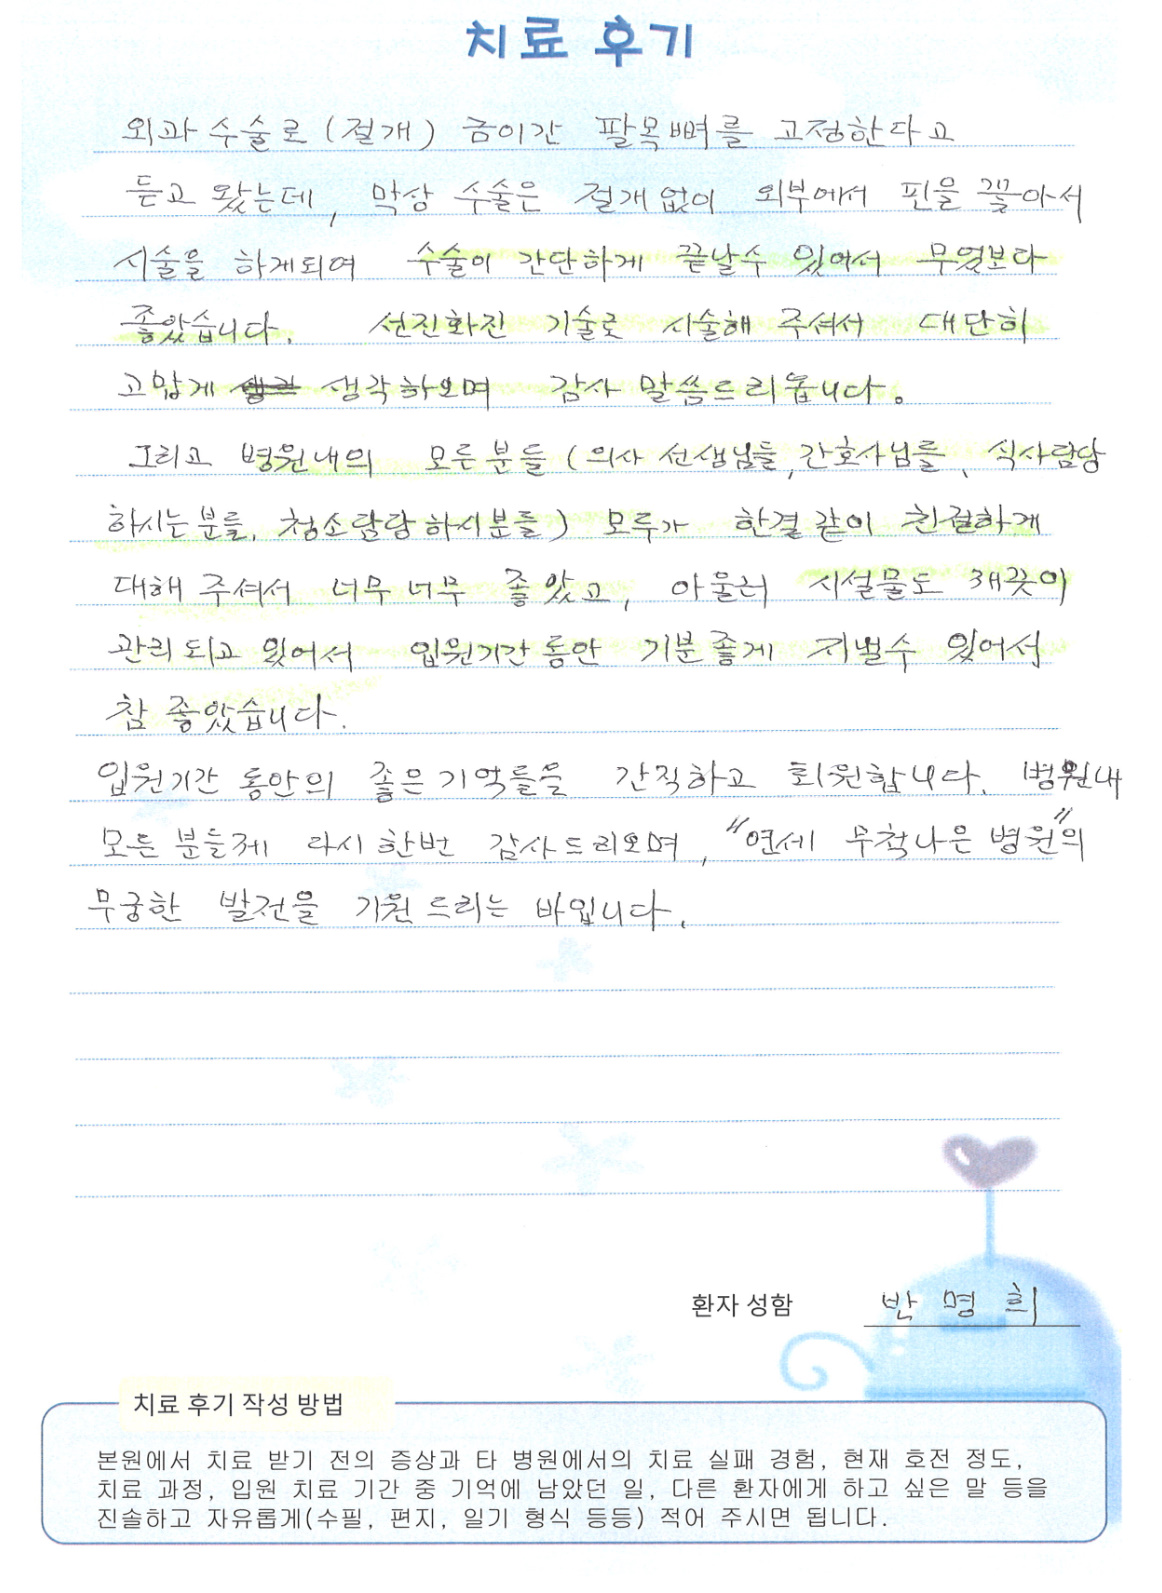 치료 후기
외과 수술로 (절개) 금이간 팔목뼈를 고정한다고
듣고 왔는데, 막상 수술은 절개없이 외부에서 핀을 꽂아서
시술을 하게되여 수술이 간단하게 끝날수 있어서 무엇보다
좋았습니다. 선진화진 기술로 시술해 주셔서 대단히
고맙게 생각하오며 감사 말씀드리옵니다.
그리고 병원내의 모든분들 (의사 선생님들, 간호사님들, 식사담당
하시는분들, 청소담당하시분들) 모두가 한결같이 친절하게
대해 주셔서 너무너무 좋았고, 아울러 시설물도 깨끗이
관리되고 있어서 입원기간동안 기분좋게 지낼수 있어서
참 좋았습니다.
입원기간 동안의 좋은기억들을 간직하고 퇴원합니다. 병원내
모든 분들께 다시한번 감사드리오며, "연세 무척나은 병원"의
무궁한 발전을 기원드리는 바입니다.
환자 성함 반 명 희
치료 후기 작성 방법
본원에서 치료 받기 전의 증상과 타 병원에서의 치료 실패 경험, 현재 호전 정도,
치료 과정, 입원 치료 기간 중 기억에 남았던 일, 다른 환자에게 하고 싶은 말 등을
진솔하고 자유롭게(수필, 편지, 일기 형식 등등) 적어 주시면 됩니다.